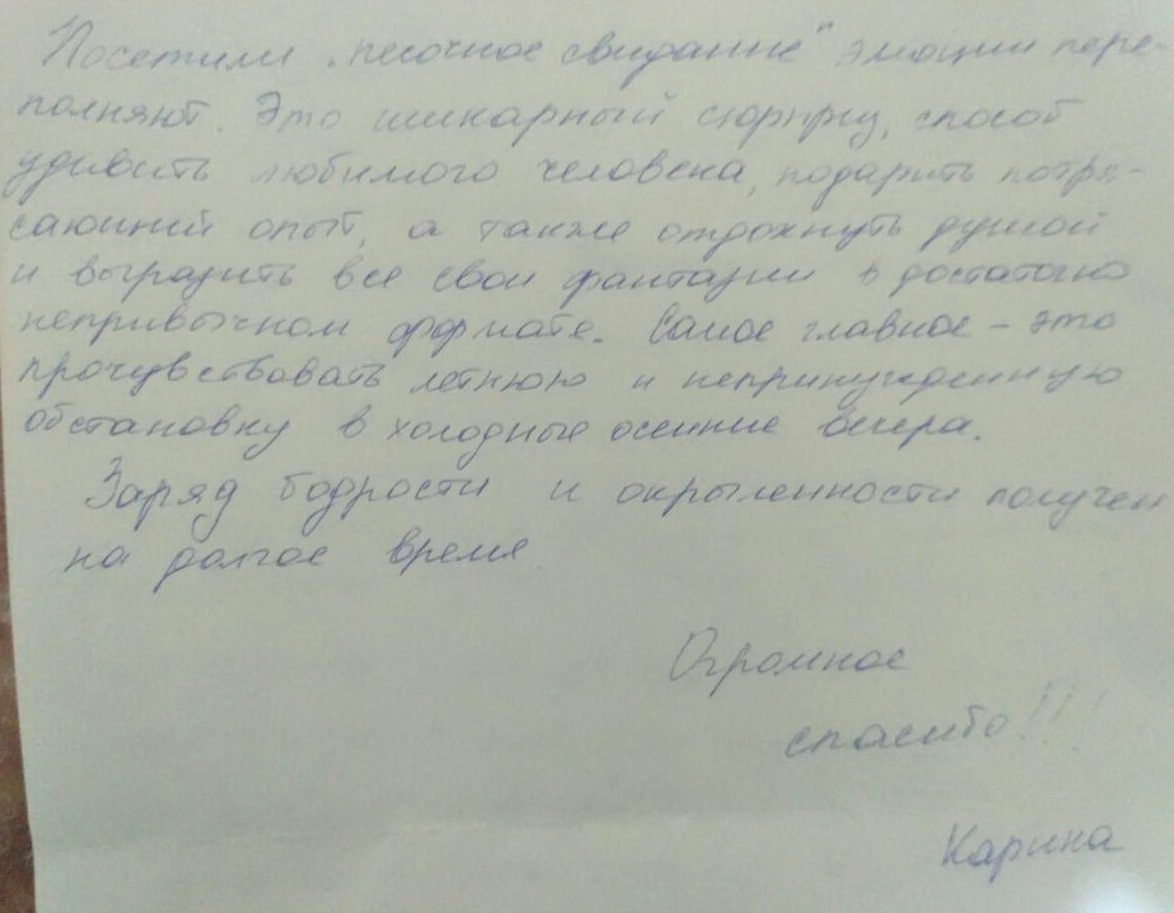 Посетили „песочное свидание" эмоции пере-
полняют. Это шикарный сюрприз, способ
удивить любимого человека, подарить потря-
сающий опыт, а также отдохнуть душой
и выразить все свои фантазии в достаточно
непривычном формате. Самое главное – это
прочувствовать летнюю и непринужденную
обстановку в холодные осенние вечера.
Заряд бодрости и окрыленности получен
на долгое время
Огромное
спасибо!!!
Карина